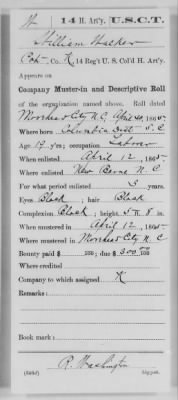 H 14 H. Art'y. U.S.C.T.
William Hacker
Pvt., Co. K, 14 Reg't U. S. Col'd H. Art'y.
Appears on
Company Muster-in and Descriptive Roll
of the organization named above. Roll dated
Morehead City N.C., April 30, 1865.
Where born Columbia Dist S. C.
Age 19 y'rs; occupation Laborer
When enlisted April 12, 1865.
Where enlisted New Berne N. C
For what period enlisted 3 years.
Eyes Black; hair Black
Complexion Black; height 5 ft. 8 in.
When mustered in April 12, 1865.
Where mustered in Morehead City N. C
Bounty paid $ 100; due $ 300 00/100
Where credited
Company to which assigned K
Remarks:
Book mark:
R. Washington
(343d) Copyist.